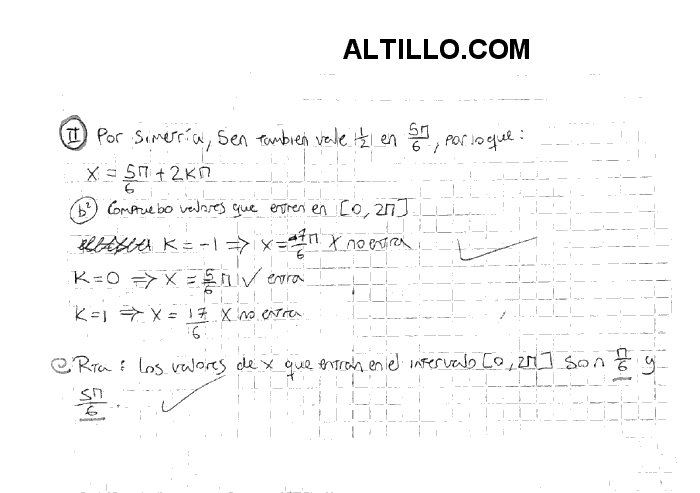 ALTILLO.COM
II Por simetría, sen también vale 1/2 en 5π/6, por lo que:
X = 5π/6 + 2Kπ
b² Compruebo valores que entren en [0, 2π]
K = -1 ⇒ x = -7π/6 X no entra
K = 0 ⇒ x = 5/6 π ✓ entra
K = 1 ⇒ x = 17/6 X no entra
C Rta: Los valores de x que entran en el intervalo [0, 2π] son π/6 y
5π/6.